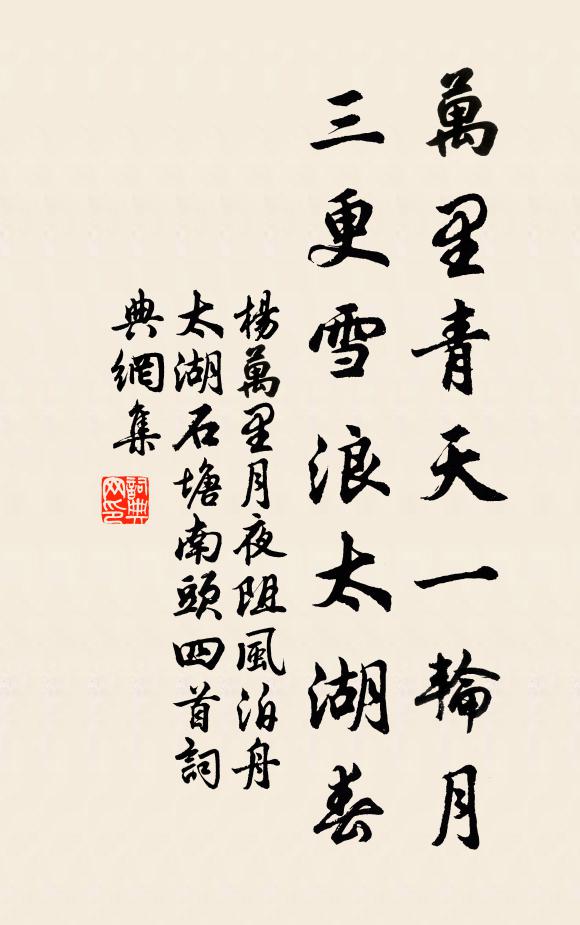 萬里青天一輪月
三更雪浪太湖春
楊萬里月夜阻風泊舟
太湖石塘南頭四首詞
典網集
詞典
网印